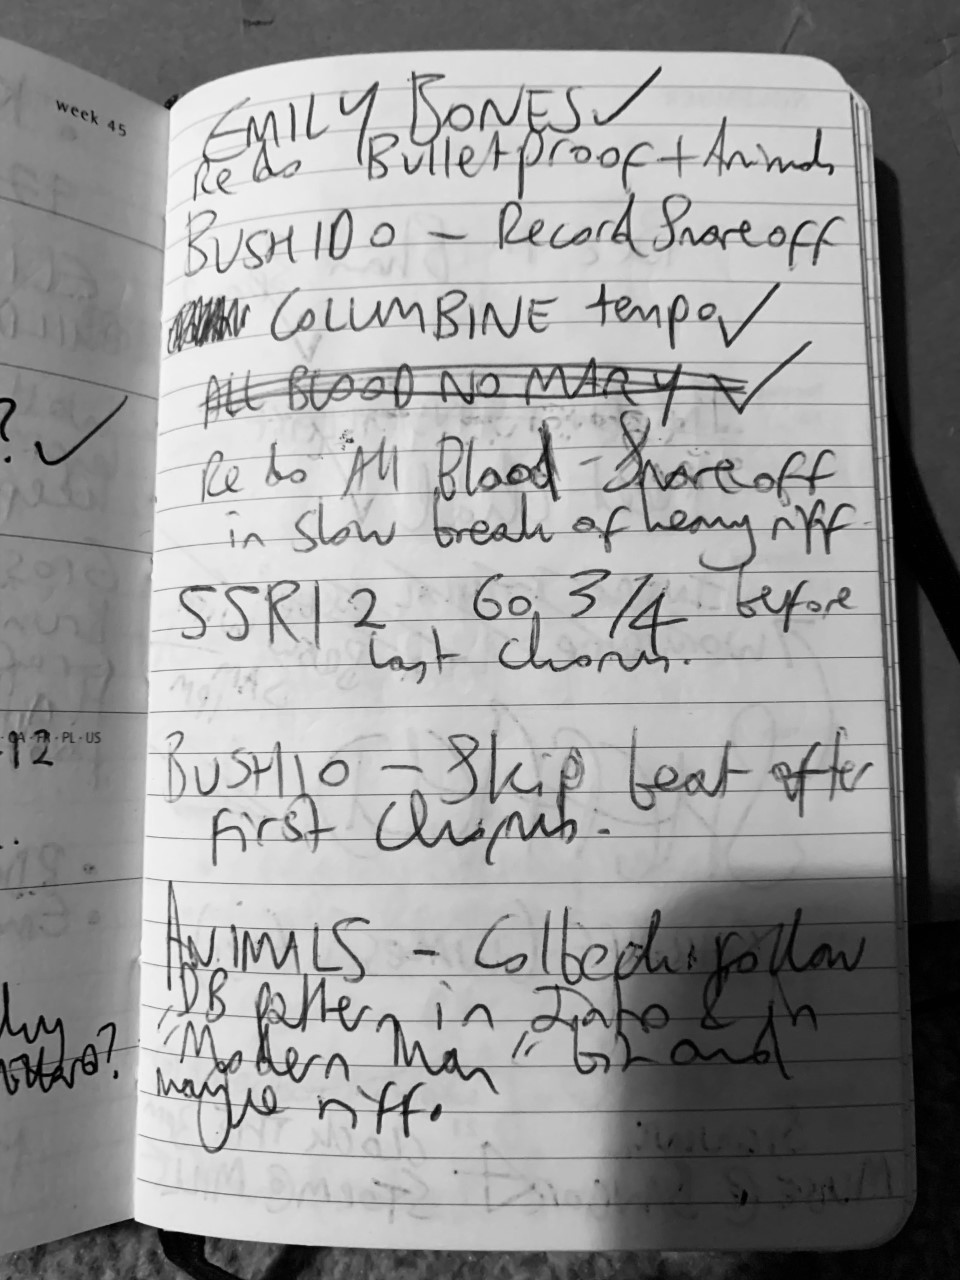 week 45
EMILY BONES ✓
Re do Bulletproof + Animals
BUSHIDO - Record Snare off
COLUMBINE tempo ✓
ALL BLOOD NO MARY ✓
Re do All Blood - Snare off
in slow break of heavy riff
SSRI 2 Go 3/4 before
last chorus.
BUSHIDO - Skip beat after
first Chorus.
ANIMALS - Collbech follow
DB pattern in Intro & in
"Modern Man" bit and
maybe riff.
? ✓
CA·FR·PL·US
12